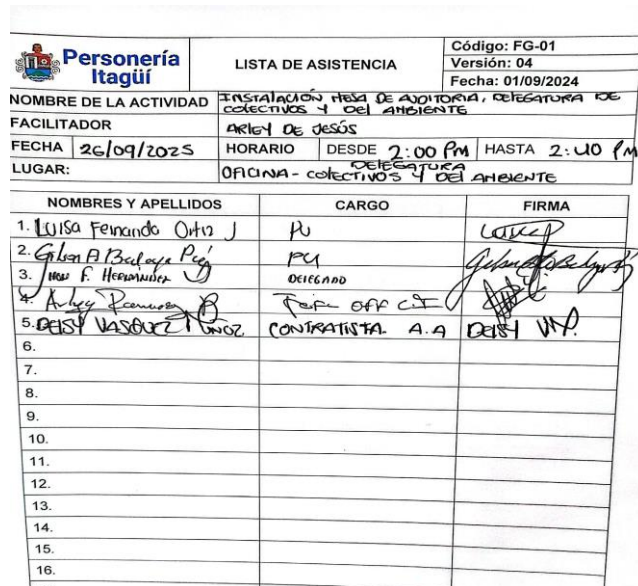 Personería
Itagüí
LISTA DE ASISTENCIA
Código: FG-01
Versión: 04
Fecha: 01/09/2024
NOMBRE DE LA ACTIVIDAD INSTALACIÓN MESA DE AUDITORIA, DELEGATURA DE
COLECTIVOS Y DEL AMBIENTE
FACILITADOR ARLEY DE JESÚS
FECHA 26/09/2025 HORARIO DESDE 2:00 PM HASTA 2:40 PM
LUGAR: OFICINA - DELEGATURA COLECTIVOS Y DEL AMBIENTE
NOMBRES Y APELLIDOS CARGO FIRMA
1. Luisa Fernanda Ortiz J PU
2. Gilson A PU
3. F. HERNÁNDEZ DELEGADO
4. Arley
5. DEISY VASQUEZ MUÑOZ CONTRATISTA. A.A DEISY
6.
7.
8.
9.
10.
11.
12.
13.
14.
15.
16.